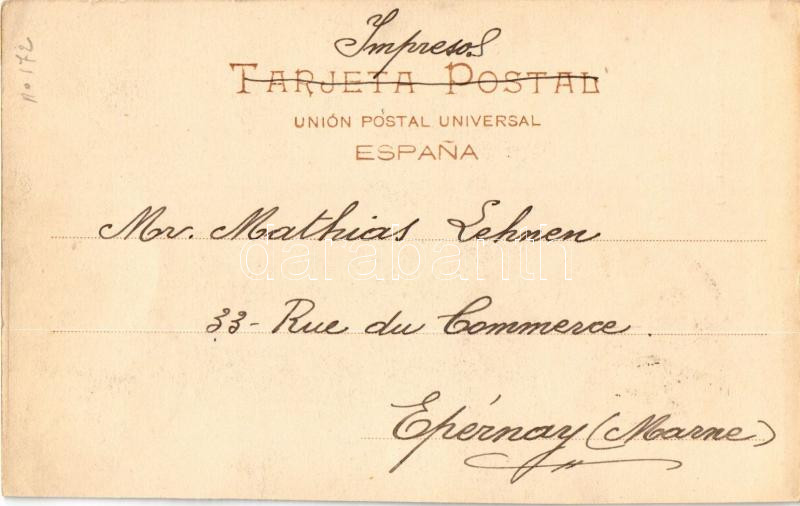 Impresos
TARJETA POSTAL
UNIÓN POSTAL UNIVERSAL
ESPAÑA
Mr. Mathias Lehnen
33- Rue du Commerce.
Epérnay (Marne)
no 172
darabanth